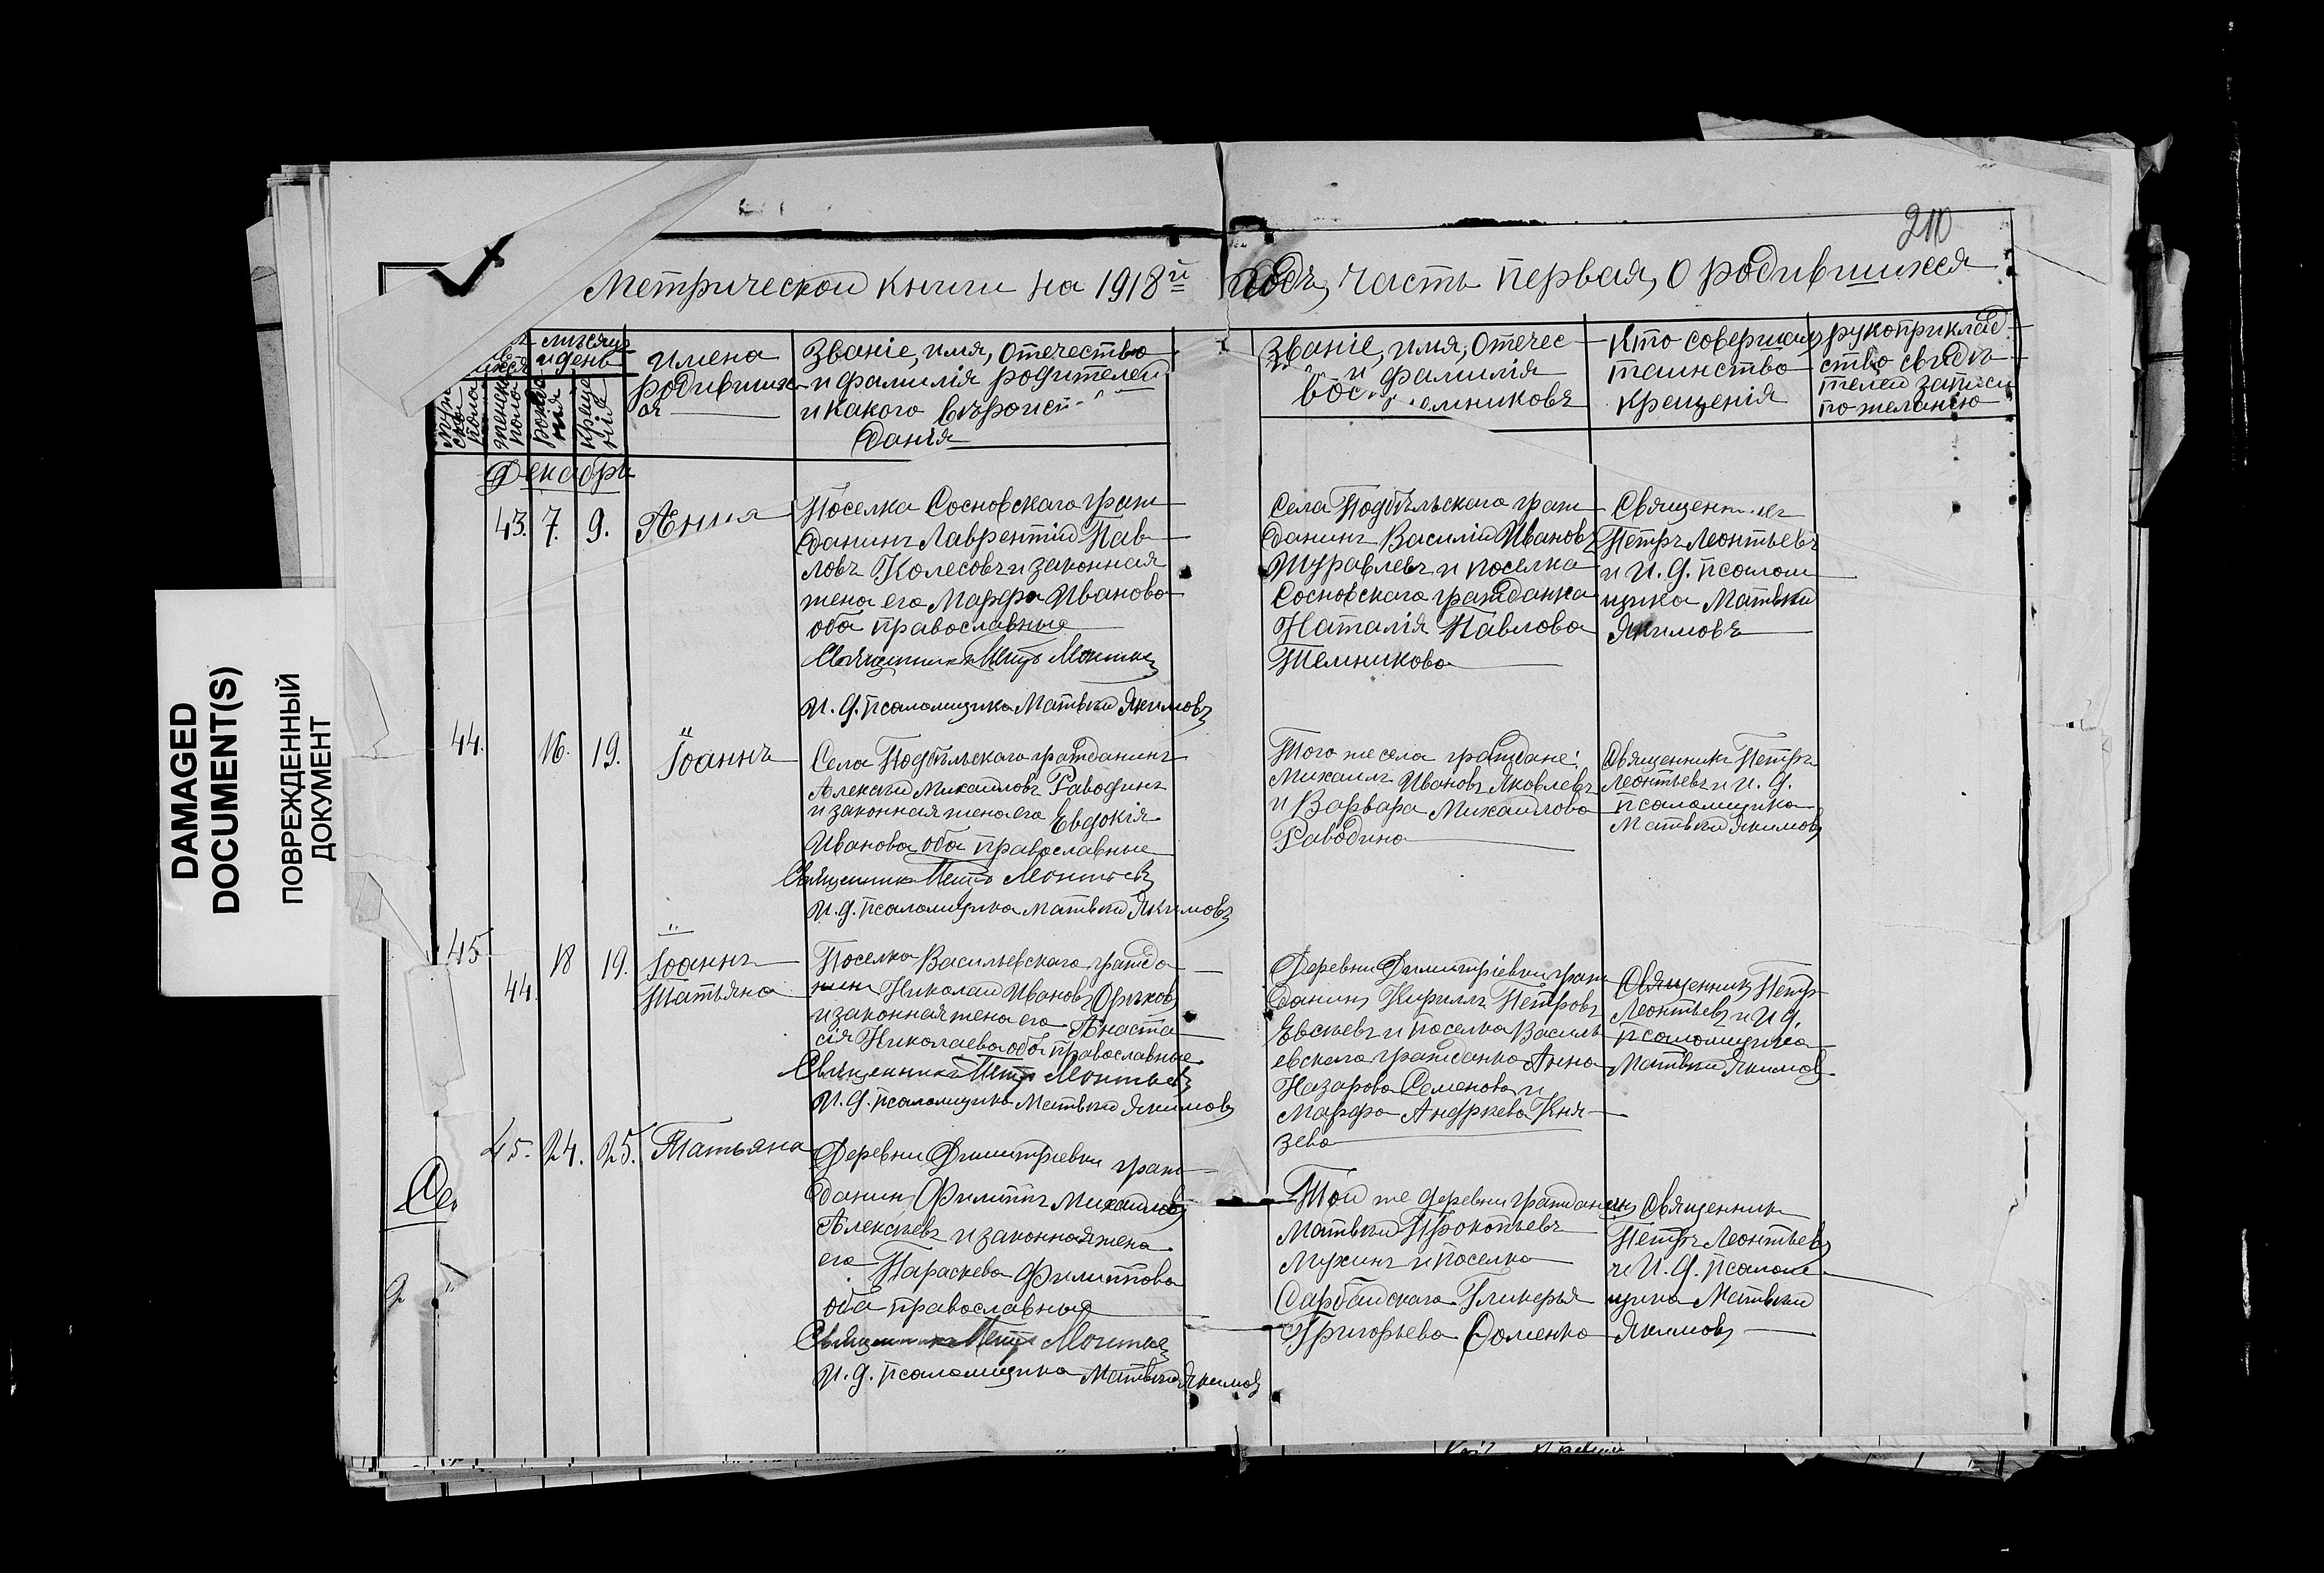 210
Метрической книги на 1918й годъ, часть первая, о родившихся
мѣсяцъ
и день
мужеска
пола
женска
пола
рожде
нія
креще
нія
имена
родившихся
Званіе, имя, отечество
и фамилія родителей
и какого вѣроиспо
данія
Званіе, имя, отечес
и фамилія
вос емниковъ
Кто совершалъ
таинство
крещенія
рукоприклад
ство свидѣ
телей записи
по желанію
Декабрь
43. 7. 9. Анна
Поселка Сосновскаго граж
данинъ Лаврентій Пав
ловъ Колесовъ и законная
жена его Марфа Иванова
оба православные
Священникъ Петръ Леонтьевъ
И. д. псаломщика Матвѣй Якимовъ
Села Подбѣльскаго граж
данинъ Василій Ивановъ
Журавлевъ и поселка
Сосновскаго гражданка
Наталія Павлова
Темникова
Священникъ
Петръ Леонтьевъ
и И. д. псалом
щика Матвѣй
Якимовъ
44. 16. 19. Іоаннъ
Села Подбѣльскаго гражданинъ
Алексѣй Михаиловъ Раводинъ
и законная жена его Евдокія
Иванова оба православные
Священникъ Петръ Леонтьевъ
И. д. псаломщика Матвѣй Якимовъ
Того же села граждане:
Михаилъ Ивановъ Яковлевъ
и Варвара Михаилова
Раводина
Священникъ Петръ
Леонтьевъ и И. д.
псаломщика
Матвѣй Якимовъ
45 18 19. Іоаннъ
44. Татьяна
Поселка Васильевскаго гражда
нинъ Николай Ивановъ
и законная жена его Анаста
сія Николаева оба православные
Священникъ Петръ Леонтьевъ
И. д. псаломщика Матвѣй Якимовъ
Деревни Димитріевки граж
данинъ Кириллъ Петровъ
Евсѣевъ и поселка Василь
евскаго гражданка Анна
Назарова Семенова и
Марфа Андреева Кня
зева
Священникъ Петръ
Леонтьевъ и И. д.
псаломщика
Матвѣй Якимовъ
45. 24. 25. Татьяна
Деревни Димитріевки граж
данинъ Филиппъ Михаиловъ
Алексѣевъ и законная жена
его Параскева Филиппова
оба православные
Священникъ Петръ Леонтьевъ
И. д. псаломщика Матвѣй Якимовъ
Той же деревни гражданинъ
Матвѣй Прокопьевъ
Мухинъ и поселка
Сарбайскаго Гликерья
Григорьева Фоменко
Священникъ
Петръ Леонтьевъ
и И. д. псалом
щика Матвѣй
Якимовъ
DAMAGED
DOCUMENT(S)
ПОВРЕЖДЕННЫЙ
ДОКУМЕНТ